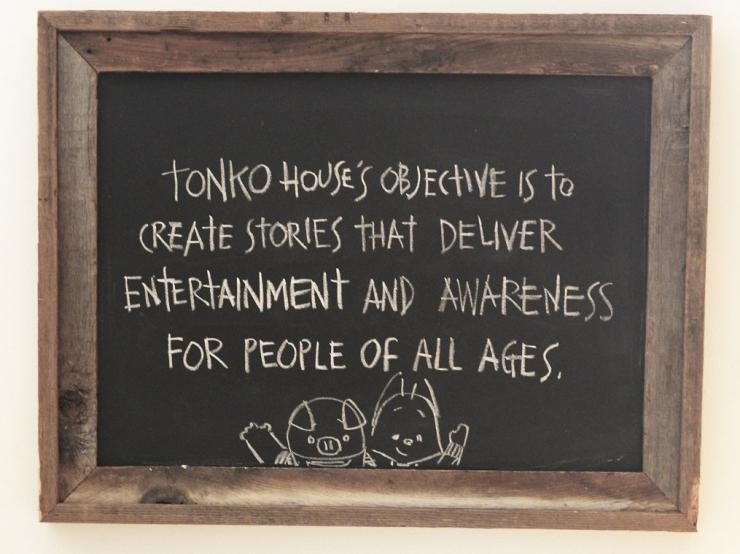 TONKO HOUSE'S OBJECTIVE IS to
CREATE STORIES THAT DELIVER
ENTERTAINMENT AND AWARENESS
FOR PEOPLE OF ALL AGES.